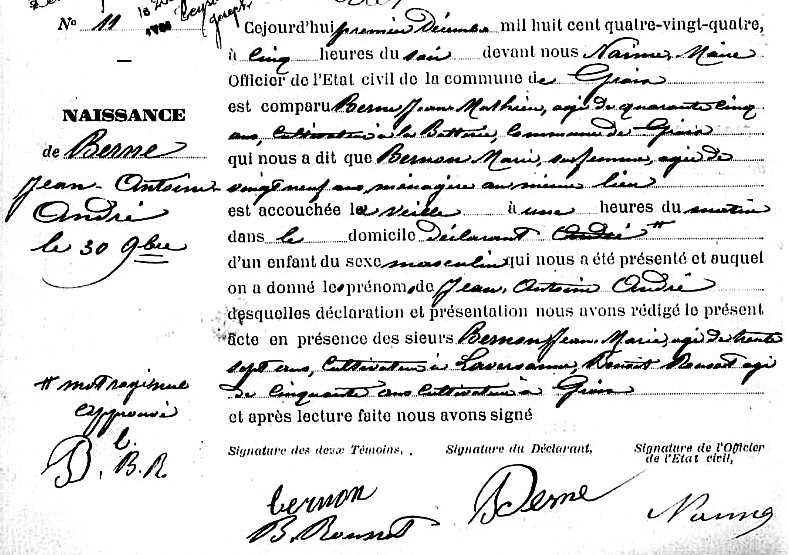 N° 11
NAISSANCE
de Berne
Jean-Antoine
André
le 30 9bre
Cejourd'hui premier Décembre mil huit cent quatre-vingt-quatre,
à cinq heures du soir devant nous Maire
Officier de l'Etat civil de la commune de
est comparu Berne Jean Mathieu, agé de quarante cinq
ans, Cultivateur à la Batterie, Commune de
qui nous a dit que Bernon Marie, sa femme, agée de
vingt neuf ans ménagère au même lieu
est accouchée la veille à une heures du matin
dans le domicile déclarant André #
d'un enfant du sexe masculin qui nous a été présenté et auquel
on a donné les prénoms de Jean, Antoine André
desquelles déclaration et présentation nous avons rédigé le présent
acte en présence des sieurs Bernon Jean Marie, agé de trente
sept ans, Cultivateur à Laversanne, Benoit Rousset agé
de cinquante ans Cultivateur à
et après lecture faite nous avons signé
# mot rayé nul
approuvé
B. b.
B. R.
Signature des deux Témoins,
Signature du Déclarant,
Signature de l'Officier
de l'Etat civil,
bernon
B. Rousset
Berne